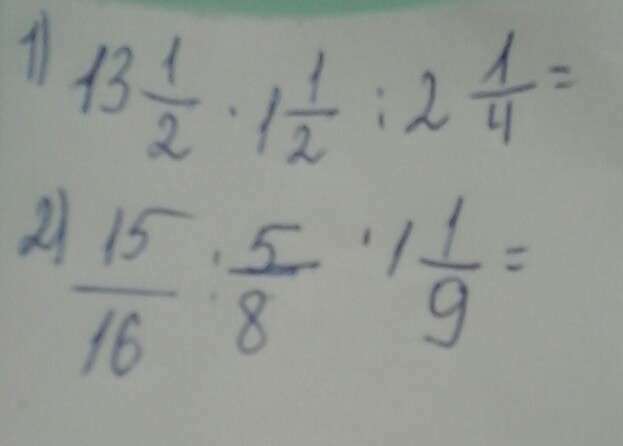 1) 13 1/2 · 1 1/2 : 2 1/4 =
2) 15/16 : 5/8 · 1 1/9 =